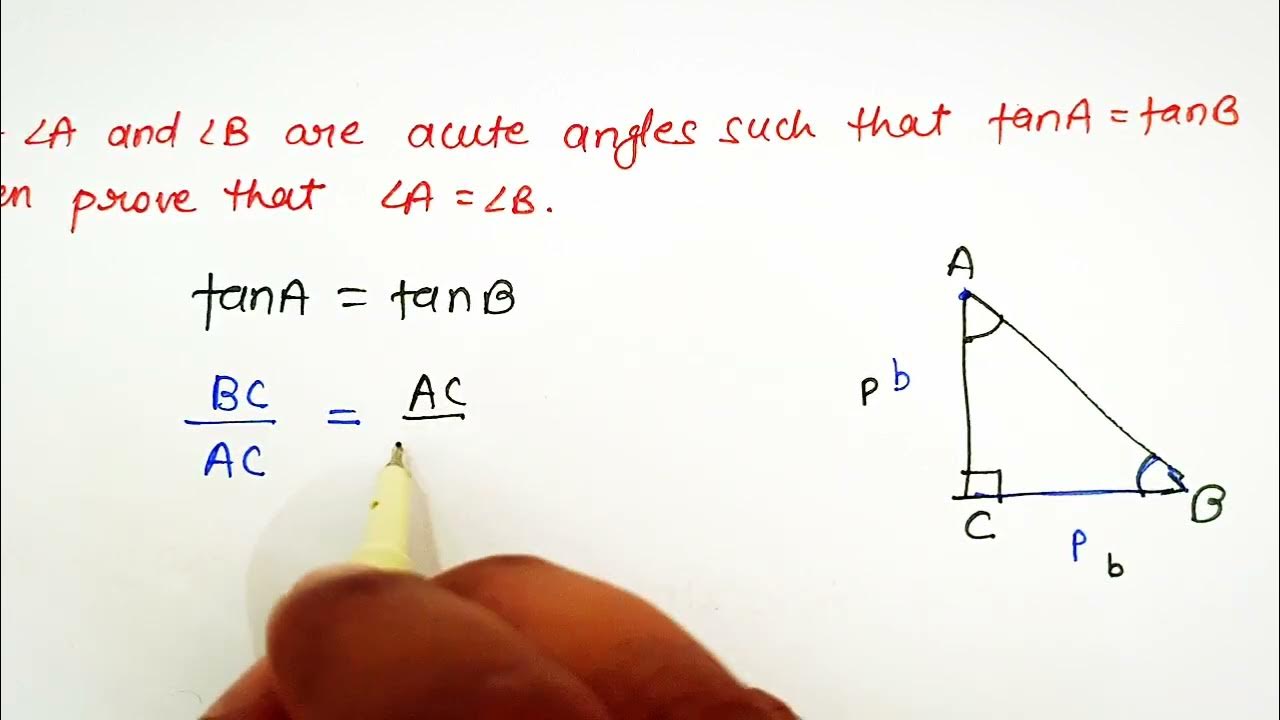 ∠A and ∠B are acute angles such that tanA = tanB
en prove that ∠A = ∠B.
tanA = tanB
BC = AC
AC
A
P b
C
B
P
b